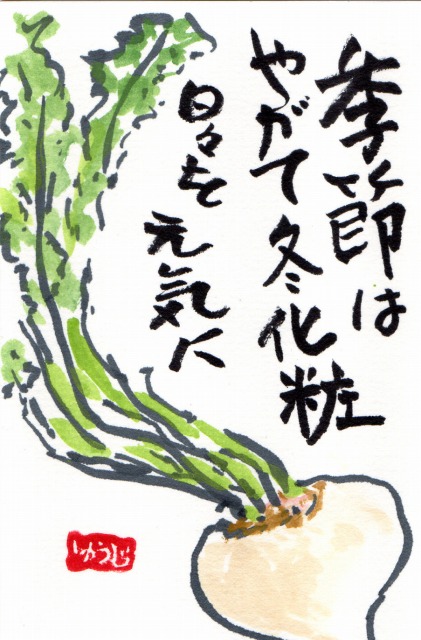 季節は
やがて冬化粧
日々を
元気に